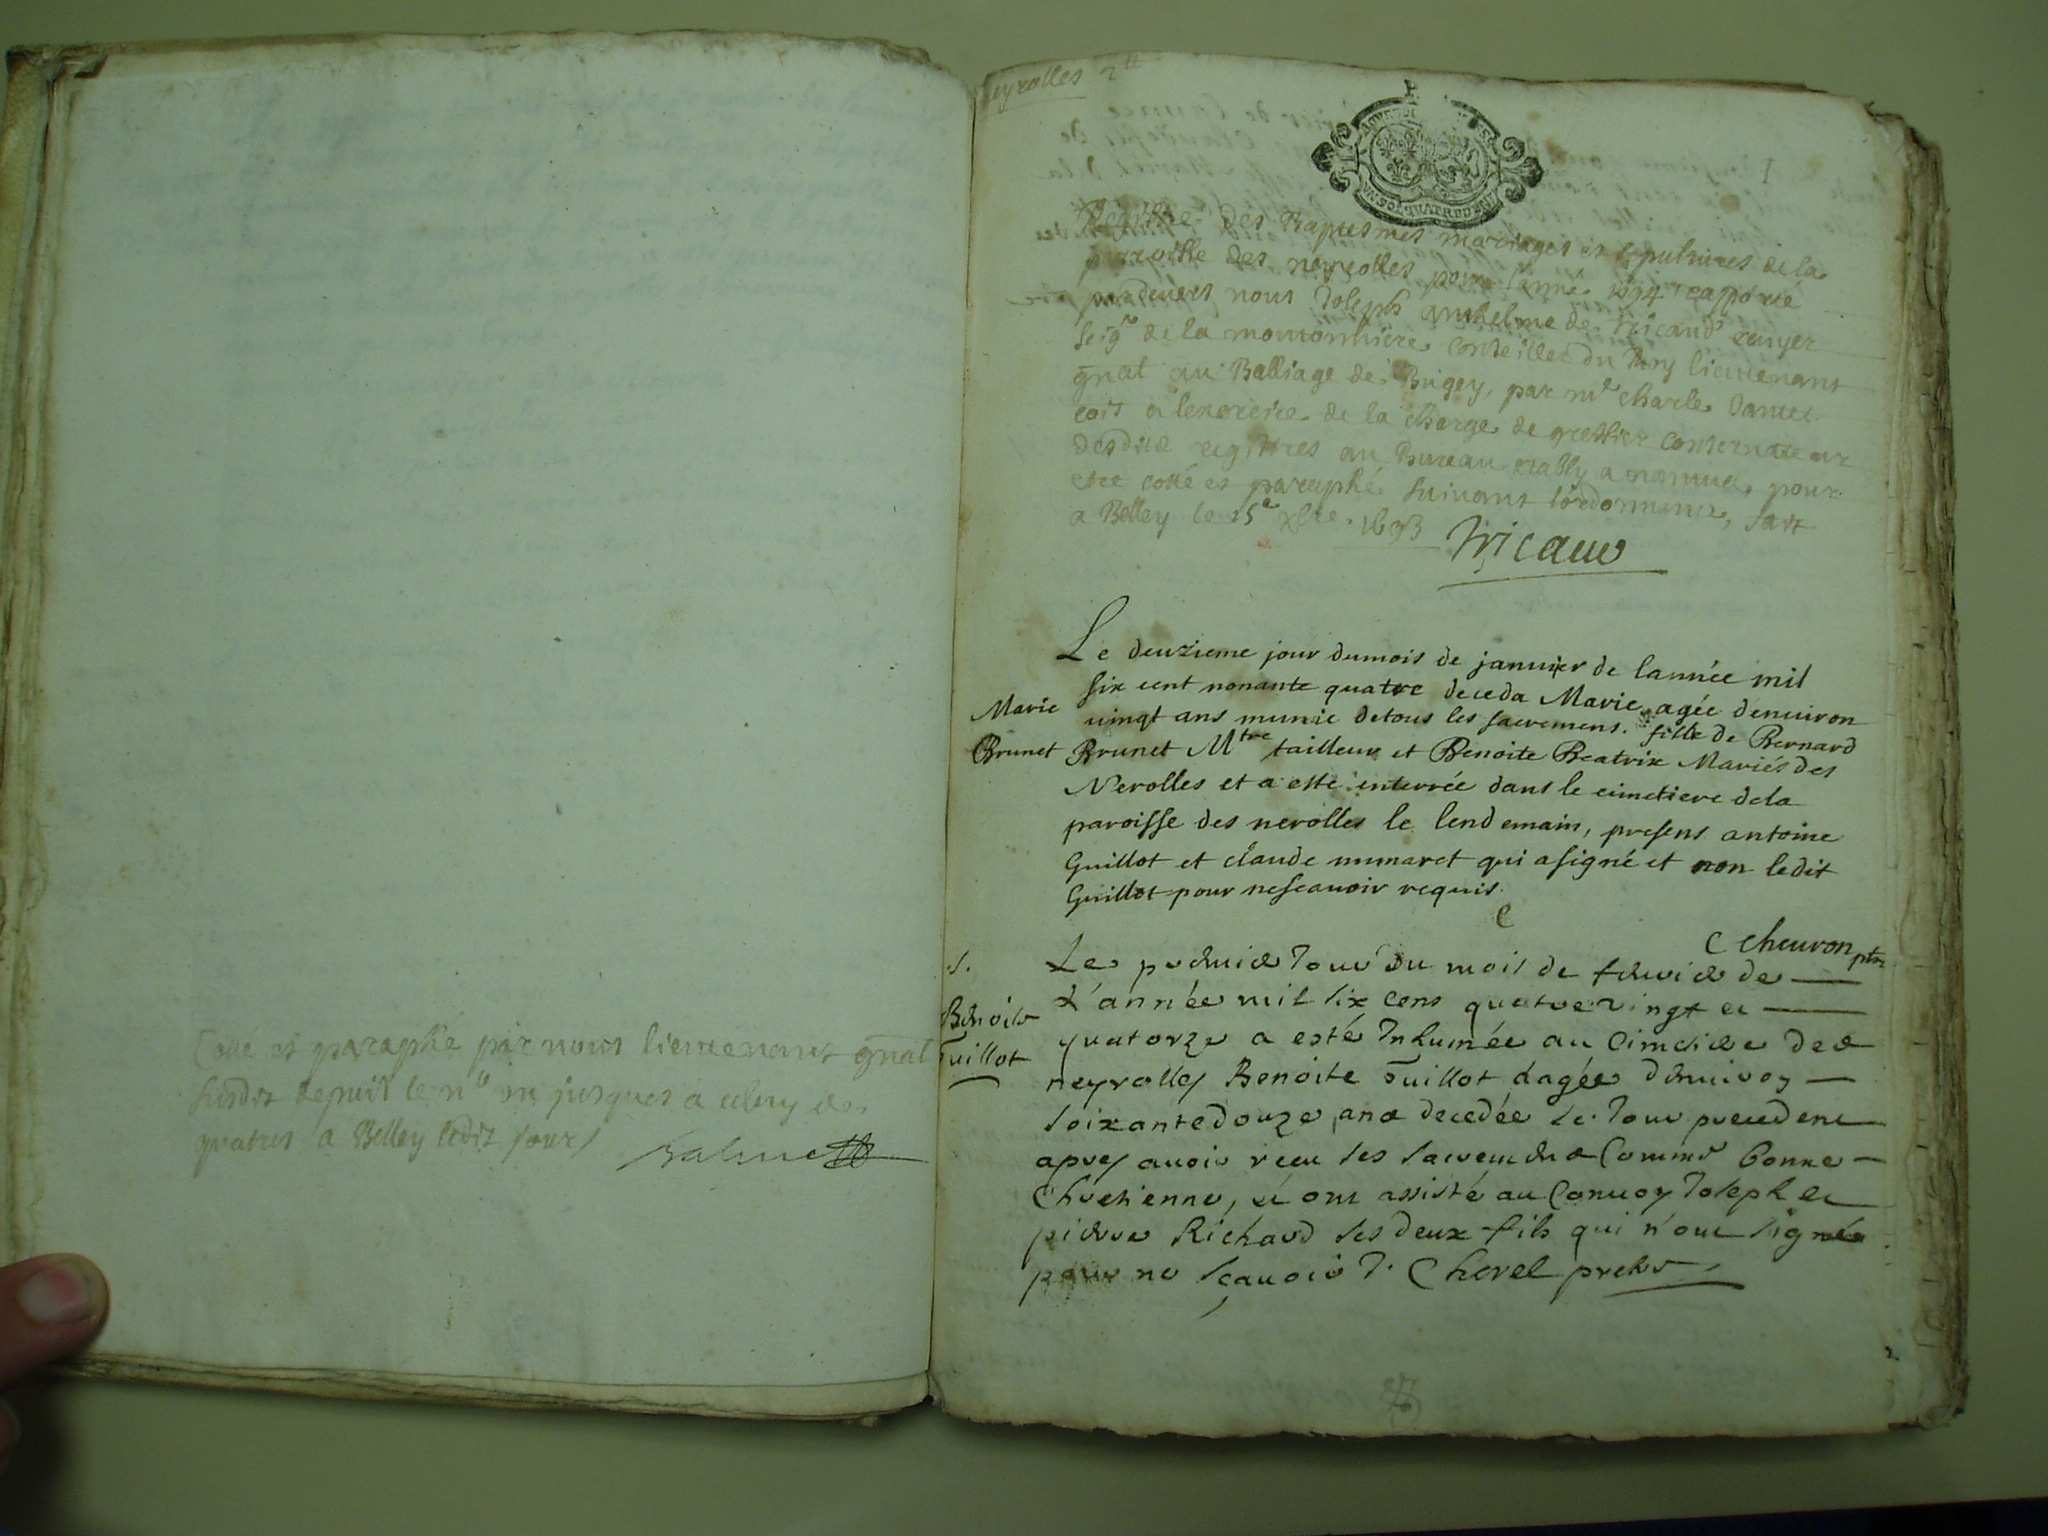 Cotté et paraphé par nous lieutenant gnãl
susdit depuis le n.º un jusques a celuy de
quatres a Belley ledit jour
neyrolles 2tt
1
Registre des Baptesmes mariages et sepultures de la
paroisse des neyrolles pour lanné 1694 rapporté
pardevers nous Joseph Anthelme de Tricaud ecuyer
seigr de la moutonniere conseiller du Roy lieutenant
gnãl au Balliage de Bugey, par me charle
cois a lexercice de la charge de greffier conservateur
desdits registres au Bureau estably a nantua, pour
etre cotté et paraphé suivant lordonnance, fait
a Belley le 15e xbre 1693
Tricaud
Le deuzieme jour dumois de januier de lannée mil
six cent nonante quatre deceda Marie agée denuiron
Marie uingt ans munie detous les sacremens. fille de Bernard
Brunet Brunet Mtre tailleur et Benoite Beatrix Mariés des
Nerolles et a esté enterrée dans le cimetiere dela
paroisse des nerolles le lendemain, presens antoine
Guillot et claude munaret qui asigné et non ledit
Guillot pour nescauoir requis.
C Cheuron ptre
.S.
Benoite
Guillot
Le premier Jour du mois de feurier de
L'année mil six cens quatre vingt et
quatorze a esté Inhumée au Cimetiere des
neyrolles Benoite Guillot dagée denuiron
soixante douze ans decedée le Jour precedent
apres auoir receu les sacremens Comme bonne
Chretienne, et ont assisté au Conuoy Joseph et
pierre Richard ses deux fils qui n'ont signés
pour ne sçauoir J. Chorel prebr